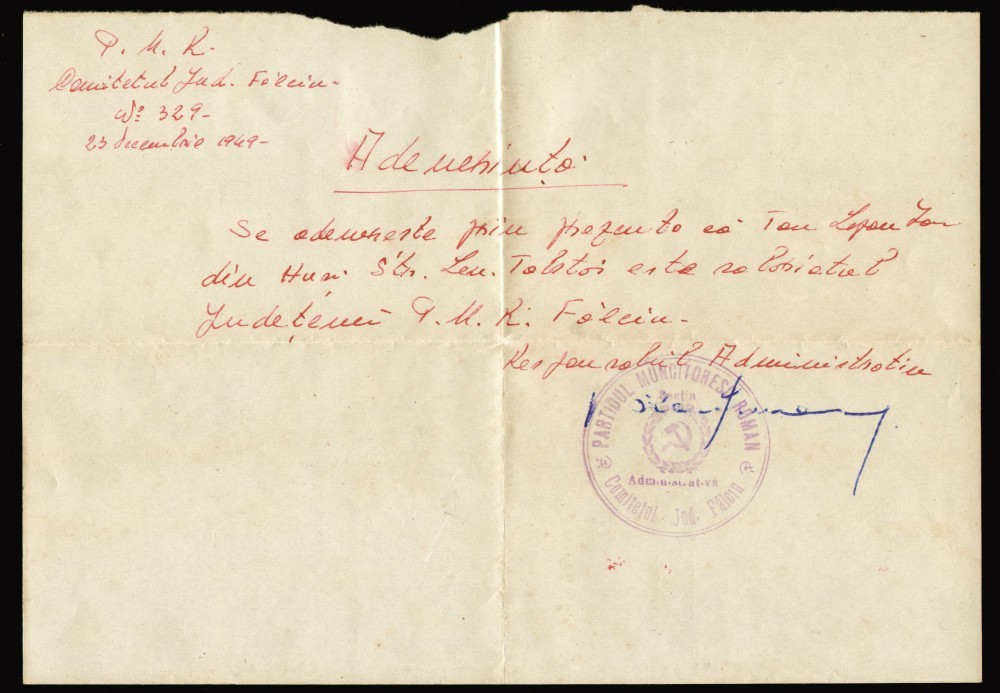 P. M. R.
Comitetul Jud. Fălciu.
Nº 329-
23 decembrie 1949-
Adeverință
Se adevereste prin prezenta că Tov.
din Husi Str. Lev. Tolstoi este salariatul
Județenii P. M. R. Fălciu.
Responsabil Administrativ
PARTIDUL MUNCITORESC ROMAN
Secția
Administrativă
Comitetul Jud. Fălciu